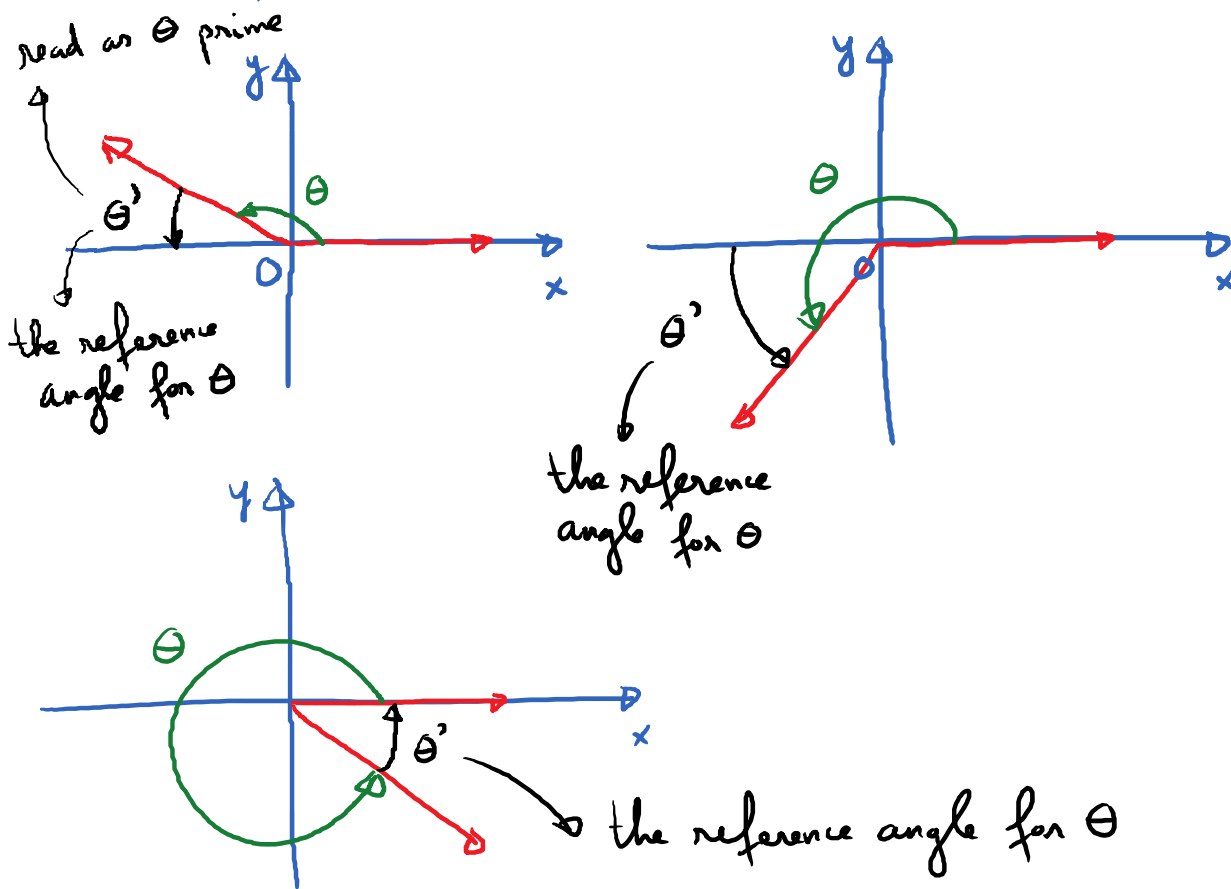 read as θ prime
y
θ
θ'
O
x
the reference
angle for θ
y
θ
O
x
θ'
the reference
angle for θ
y
θ
x
θ'
the reference angle for θ